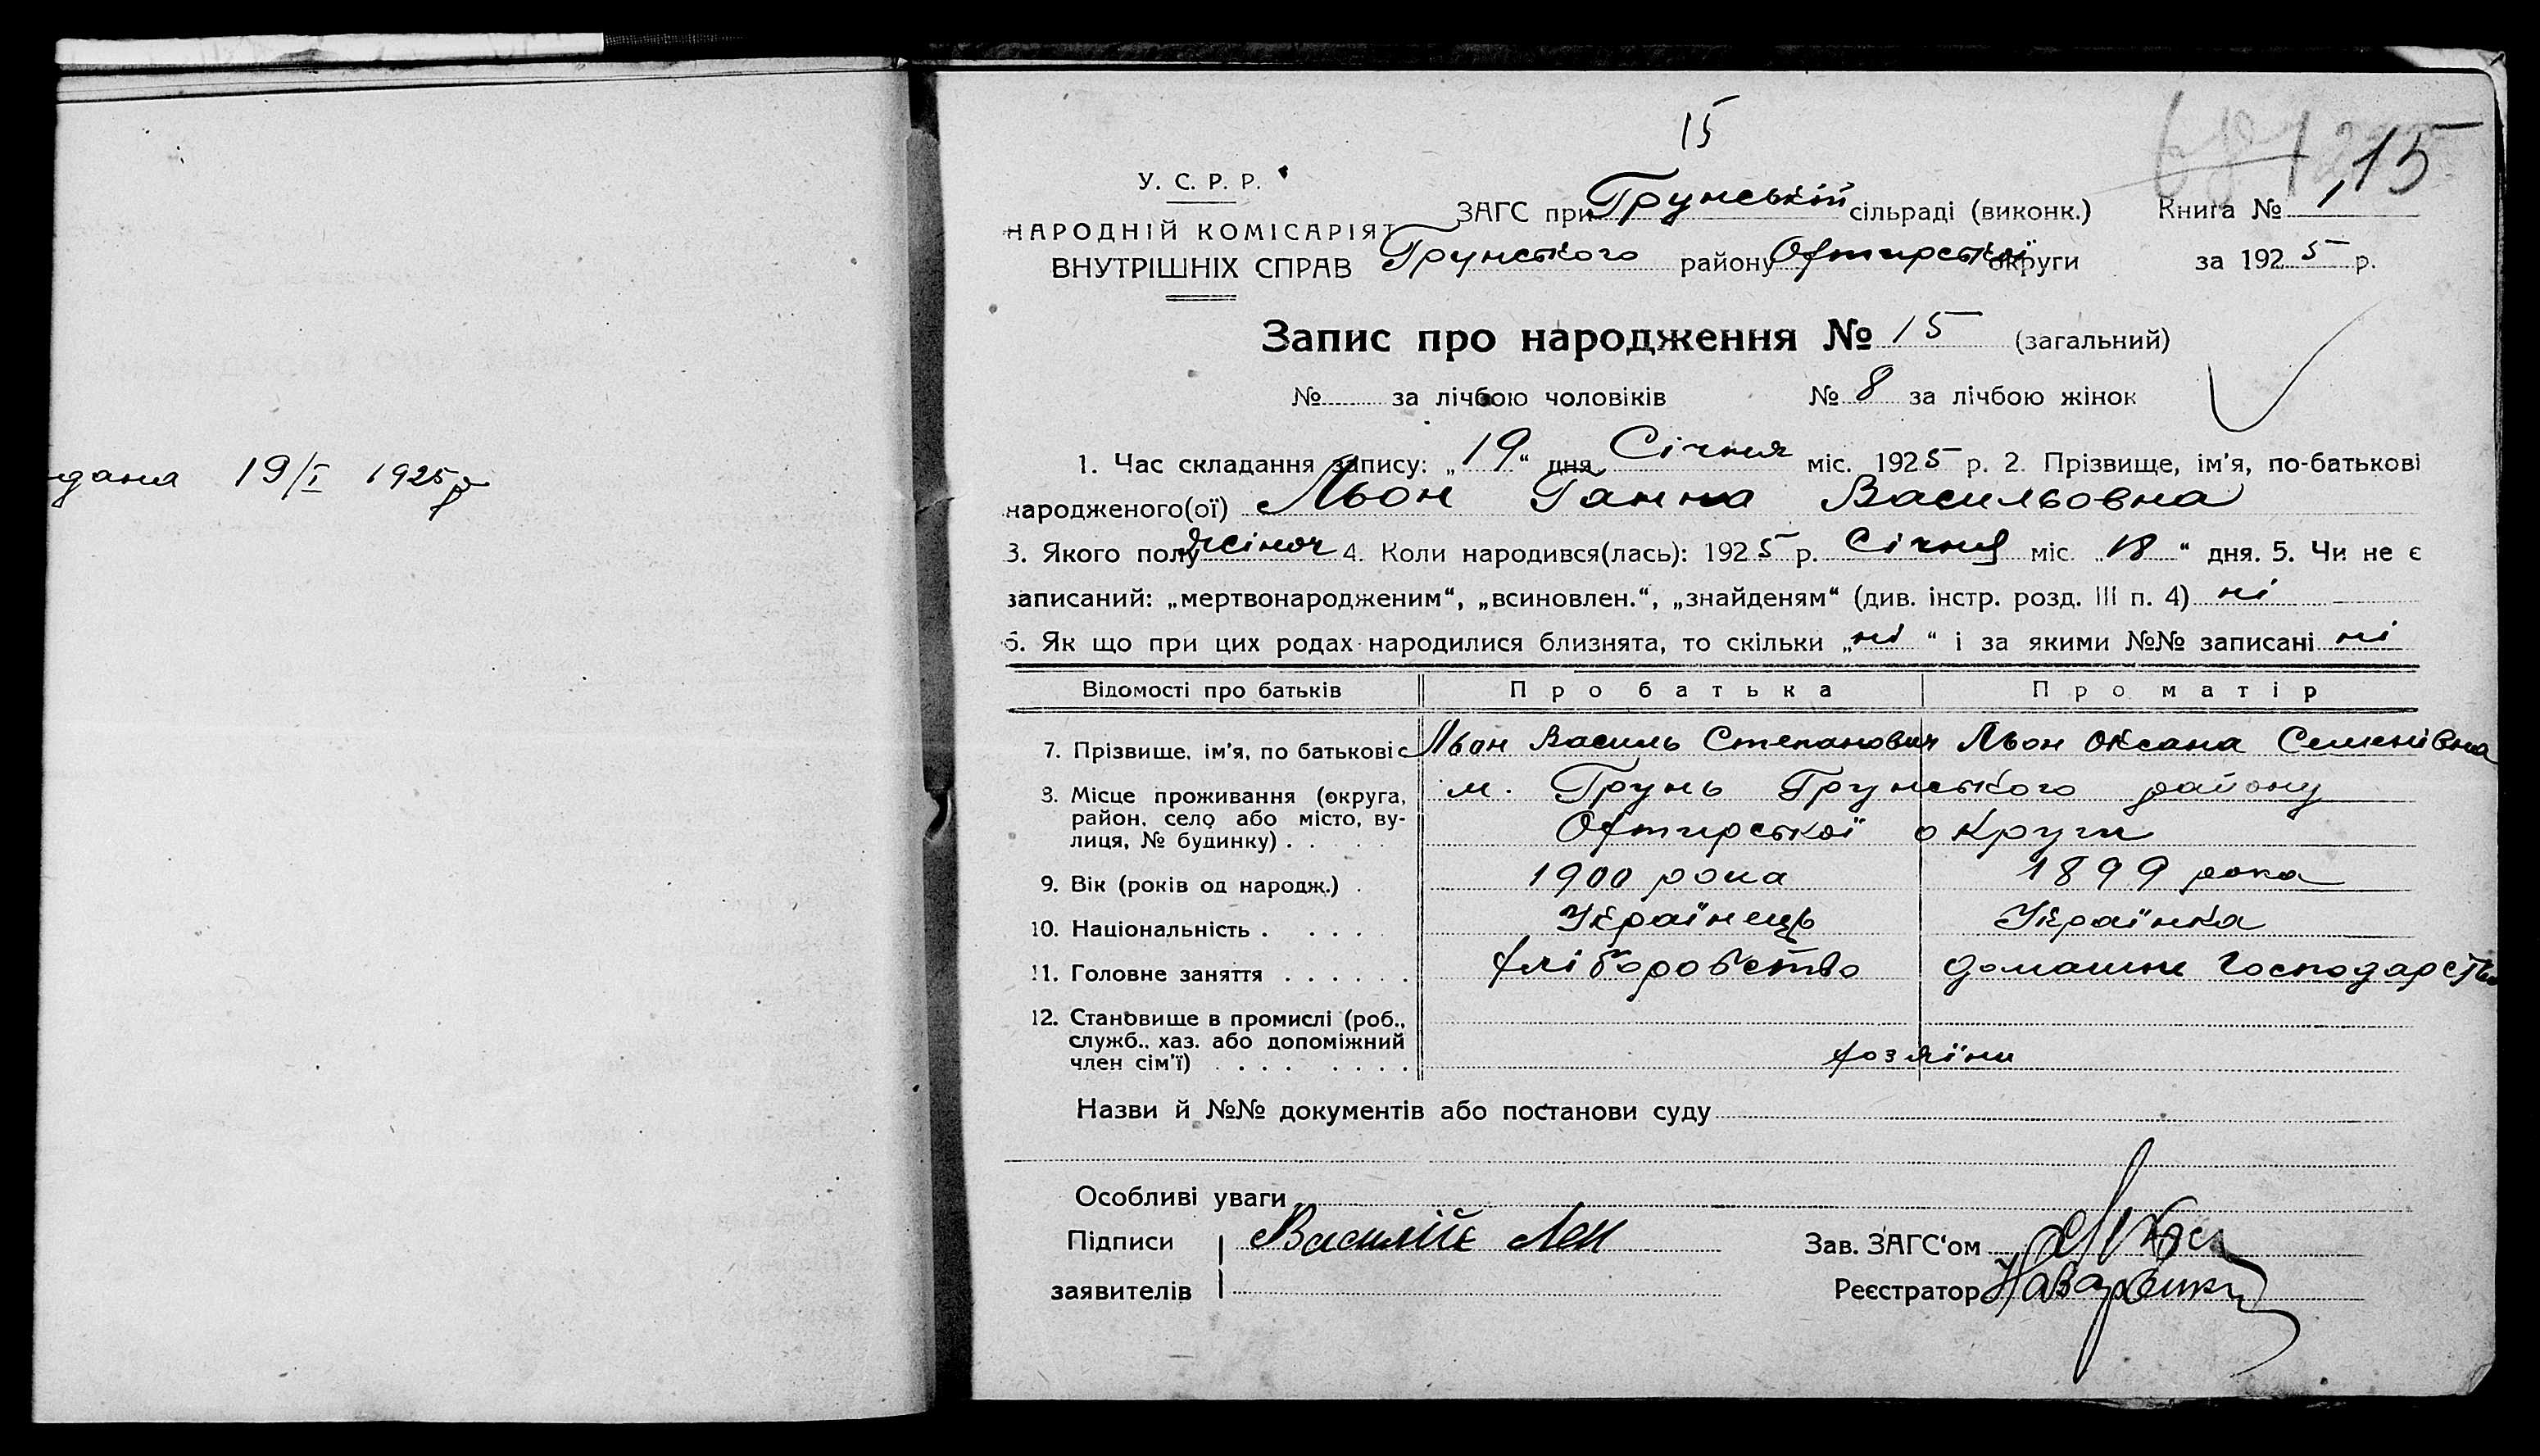 дана 19/I 1925 р
15
15
У. С. Р. Р.
НАРОДНІЙ КОМІСАРІЯТ
ВНУТРІШНІХ СПРАВ
ЗАГС при Грунській сільраді (виконк.) Книга № 1
Грунського району Охтирської округи за 1925 р.
Запис про народження № 15 (загальний)
№ за лічбою чоловіків № 8 за лічбою жінок
1. Час складання запису: „19“ дня Січня міс. 1925 р. 2. Прізвище, ім'я, по-батькові
народженого(ої) Льон Ганна Васильовна
3. Якого полу жіноч 4. Коли народився(лась): 1925 р. Січня міс. „18“ дня. 5. Чи не є
записаний: „мертвонародженим“, „всиновлен.“, „знайденям“ (див. інстр. розд. III п. 4) ні
6. Як що при цих родах народилися близнята, то скільки „ні“ і за якими №№ записані ні
Відомості про батьків Про батька Про матір
7. Прізвище, ім'я, по батькові Льон Василь Степанович Льон Оксана Семенівна
8. Місце проживання (округа, м. Грунь Грунського району
район, село або місто, ву-
лиця, № будинку) . . . . . Охтирської округи
9. Вік (років од народж.) . 1900 рока 1899 рока
10. Національність . . . . . Українець Українка
11. Головне заняття . . . . . . хліборобство домашнє господарство
12. Становище в промислі (роб.,
служб., хаз. або допоміжний
член сім'ї) . . . . . . . . хозяїни
Назви й №№ документів або постанови суду
Особливі уваги
Підписи Зав. ЗАГС'ом
заявителів Реєстратор